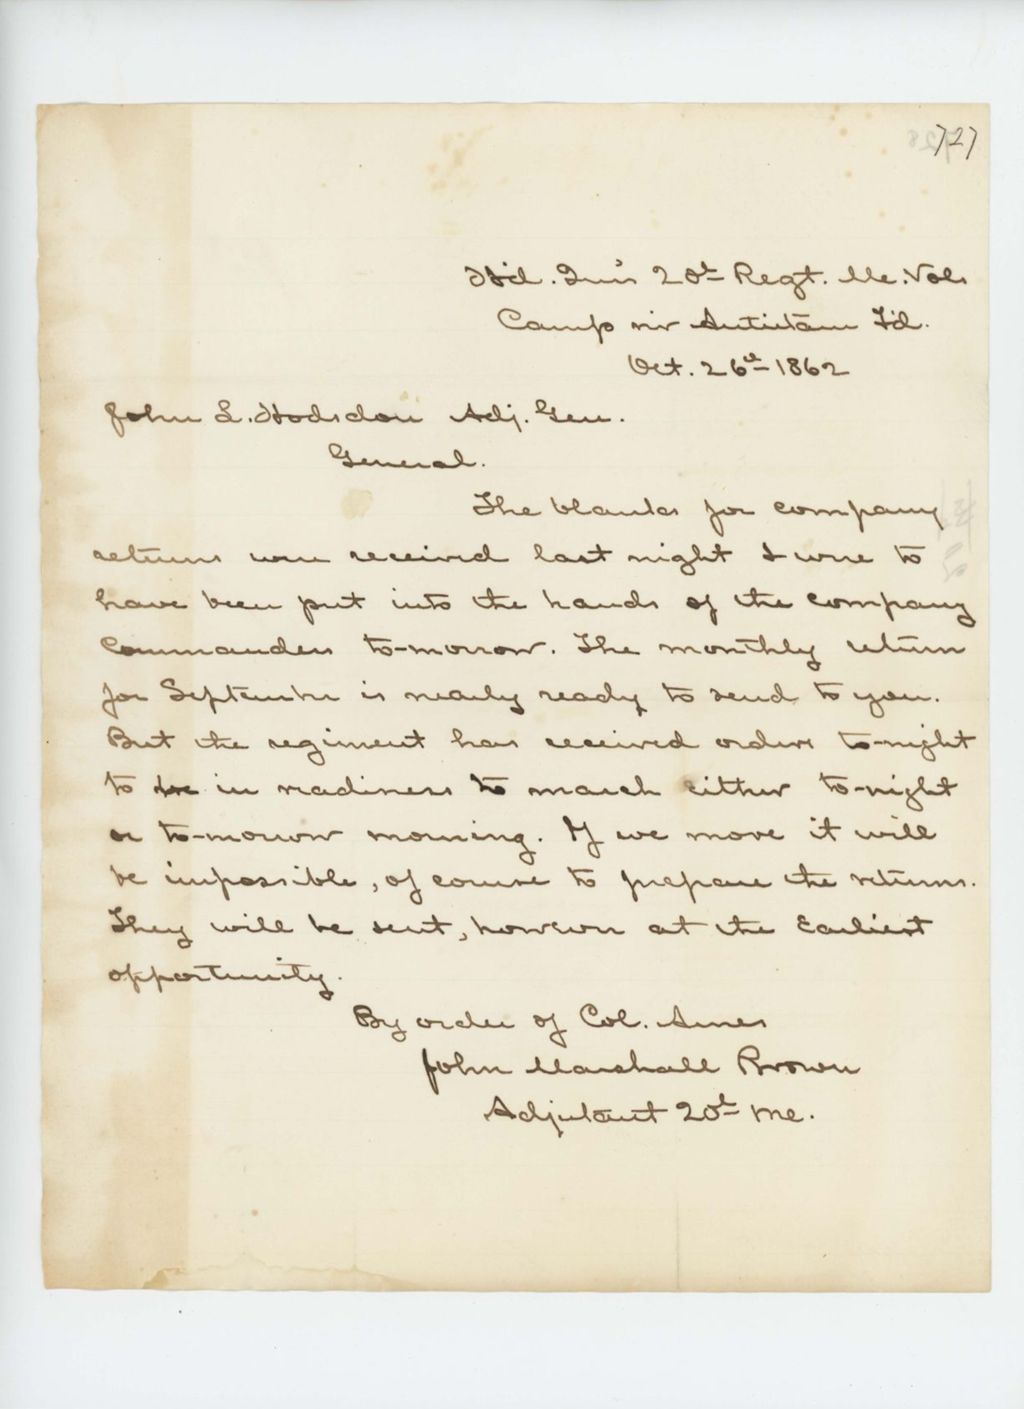 727
Hd. Qrs 20th Regt. Me. Vols
Camp nr Antietam Fd.
Oct. 26th 1862
John L. Hodsdon Adj. Gen.
General.
The blanks for company
returns were received last night & were to
have been put into the hands of the company
Commanders to-morrow. The monthly return
for September is nearly ready to send to you.
But the regiment has received orders to-night
to be in readiness to march either to-night
or to-morrow morning. If we move it will
be impossible, of course to prepare the returns.
They will be sent, however at the Earliest
opportunity.
By order of Col. Ames
John Marshall Brown
Adjutant 20th Me.